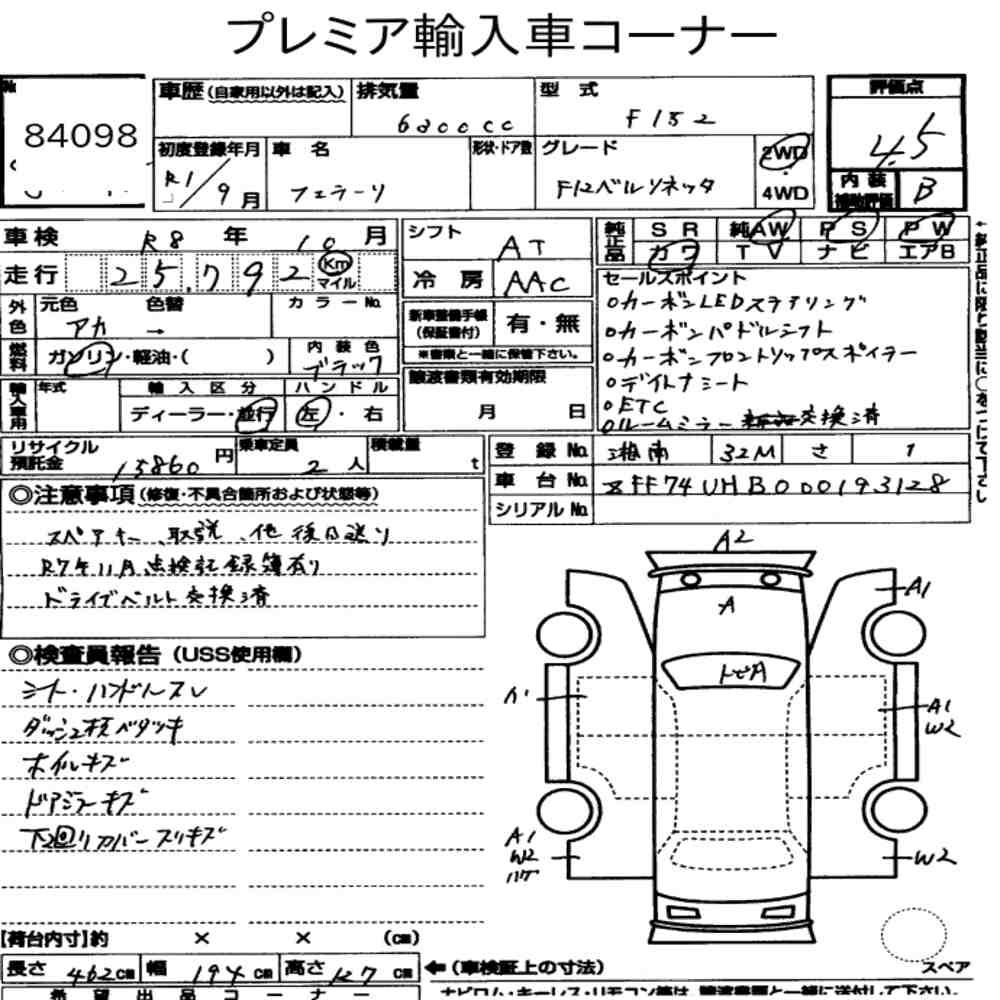 プレミア輸入車コーナー
No.
84098
車歴 (自家用以外は記入)
排気量
6200cc
型 式
F152
評価点
4.5
初度登録年月
R1/9月
車 名
フェラーリ
形状・ドア数
グレード
F12ベルリネッタ
2WD
4WD
内 装
補助評価
B
車検 R8 年 10 月
走行 25,792 Km マイル
シフト AT
冷 房 AAC
純正品 SR 純AW PS PW
カワ TV ナビ エアB
外色 元色 アカ 色替 → カラーNo.
燃料 ガソリン・軽油・( )
内 装 色 ブラック
新車整備手帳
(保証書付)
有・無
※書類と一緒に保管下さい。
セールスポイント
○カーボンLEDステアリング
○カーボンパドルシフト
○カーボンフロントリップスポイラー
○デイトナシート
○ETC
○ルームミラー 交換済
輸入車用 年式 輸入区分 ハンドル
ディーラー・並行 左・右
譲渡書類有効期限
月 日
リサイクル
預託金 15860円
乗車定員 2人
積載量 t
登 録 No. 湘南 32M さ 1
車 台 No. ZFF74UHB000193128
シリアルNo.
◎注意事項 (修復・不具合箇所および状態等)
スペアキー、取説、他 後日送り
R7年11月点検記録簿有り
ドライブベルト交換済
◎検査員報告 (USS使用欄)
シート・ハンドルスレ
ダッシュ枝ベタツキ
ホイルキズ
ドアミラーキズ
下回リカバースリキズ
A2
A
A1
トビA
A1
W2
A1
W2
ハゲ
W2
スペア
【荷台内寸】約 × × (cm)
長さ 462cm 幅 194cm 高さ 127cm
←(車検証上の寸法)
希望出品コーナー
ナビロム・キーレス・リモコン等は、譲渡書類と一緒に送付して下さい。